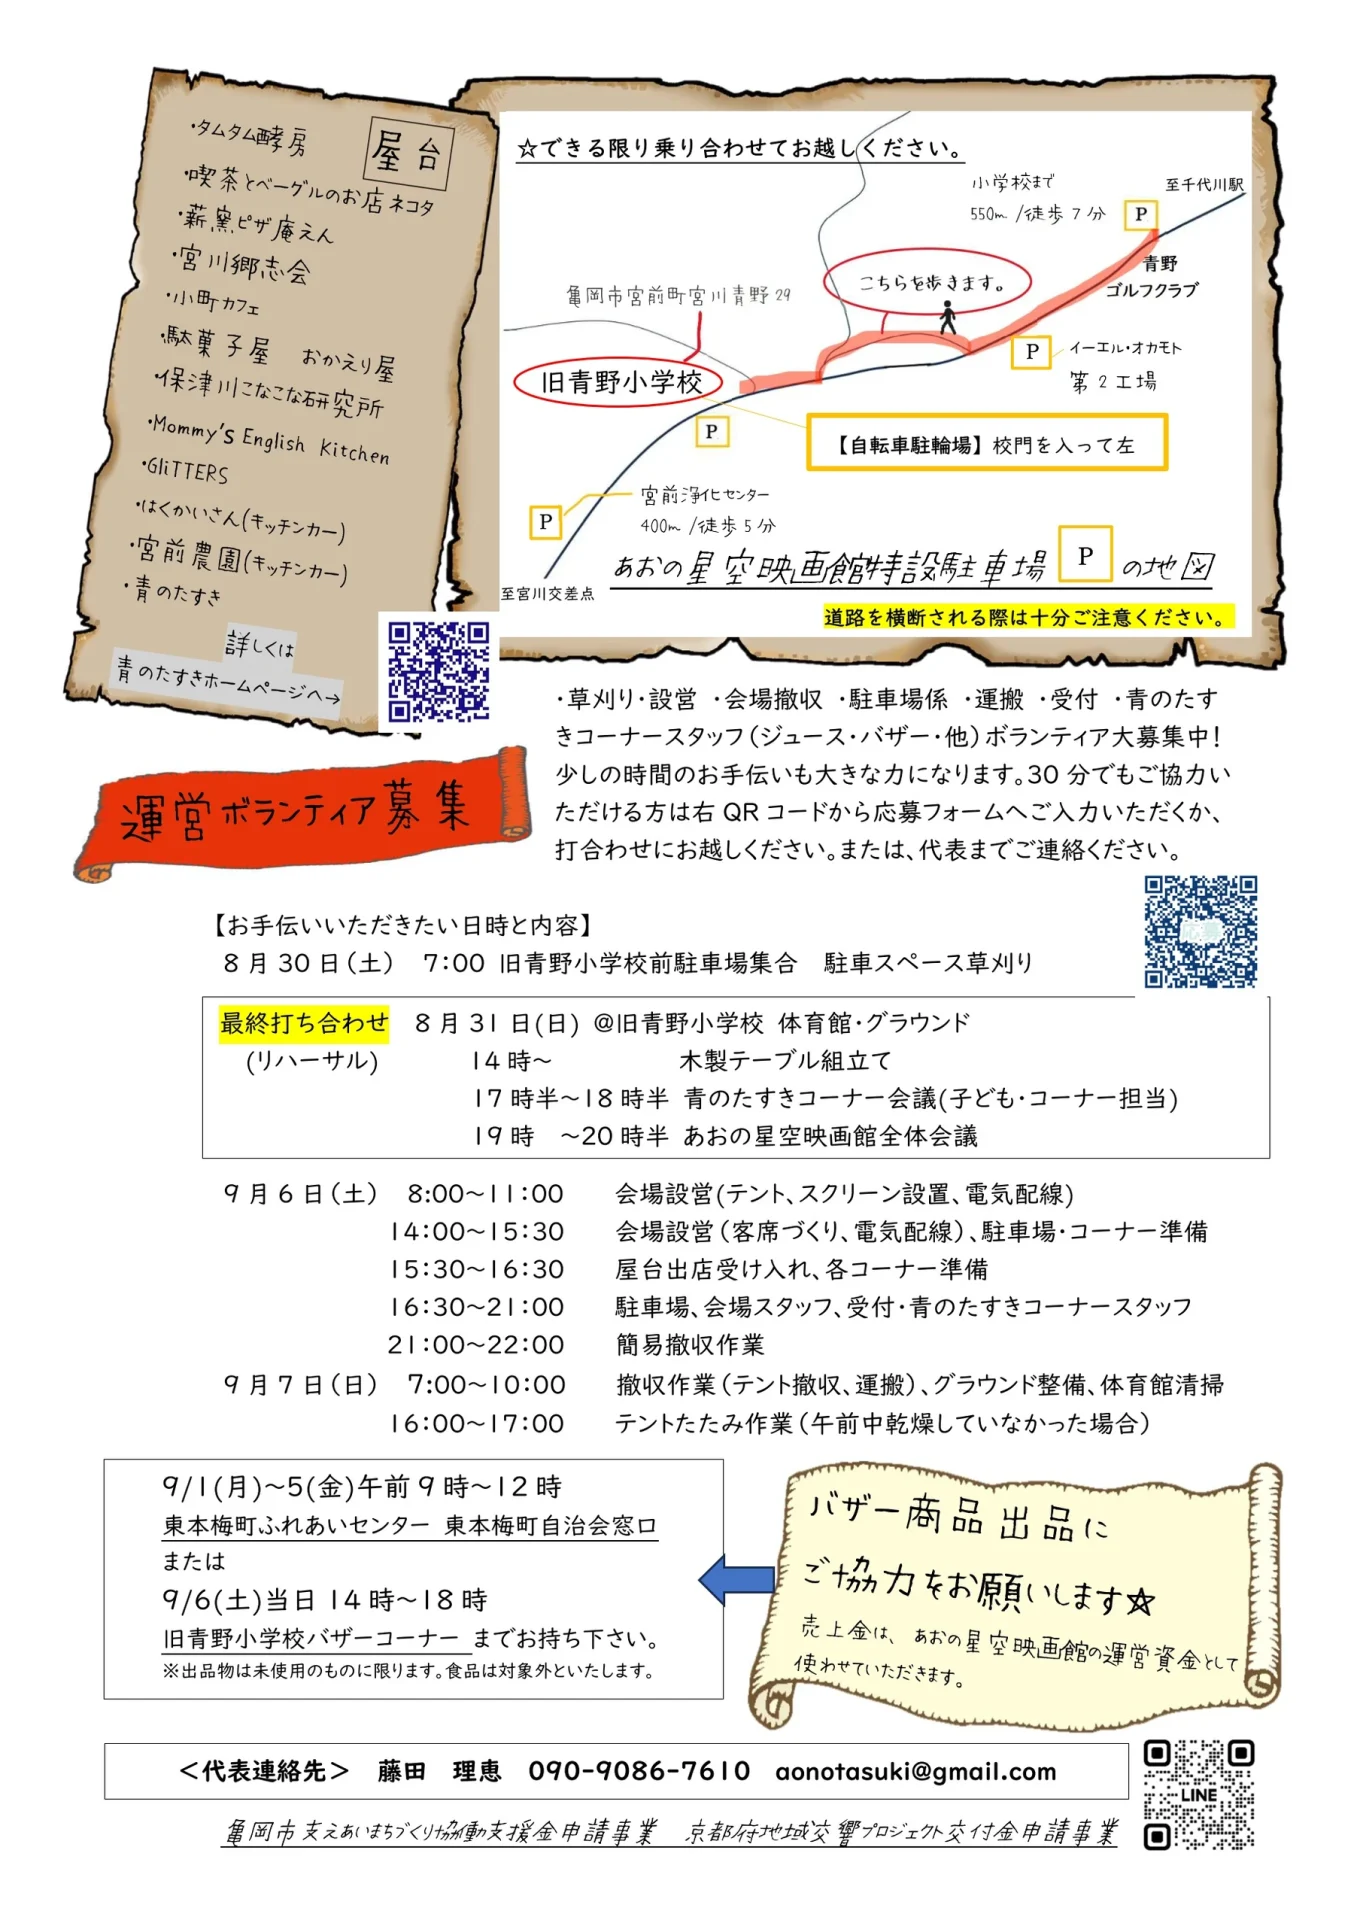 屋台
・タムタム酵房
・喫茶とベーグルのお店 ネコタ
・薪窯ピザ庵えん
・宮川郷志会
・小町カフェ
・駄菓子屋　おかえり屋
・保津川こなこな研究所
・Mommy's English Kitchen
・GliTTERS
・はくかいさん(キッチンカー)
・宮前農園(キッチンカー)
・青のたすき
詳しくは
青のたすきホームページへ→
☆できる限り乗り合わせてお越しください。
小学校まで
550m /徒歩 7 分
至千代川駅
P
青野
ゴルフクラブ
こちらを歩きます。
亀岡市宮前町宮川青野 29
旧青野小学校
P
イーエル・オカモト
第 2 工場
P
【自転車駐輪場】 校門を入って左
P
宮前浄化センター
400m /徒歩 5 分
至宮川交差点
あおの星空映画館特設駐車場 P の地図
道路を横断される際は十分ご注意ください。
運営ボランティア募集
・草刈り・設営 ・会場撤収 ・駐車場係 ・運搬 ・受付 ・青のたす
きコーナースタッフ（ジュース・バザー・他）ボランティア大募集中！
少しの時間のお手伝いも大きな力になります。30 分でもご協力い
ただける方は右 QR コードから応募フォームへご入力いただくか、
打合わせにお越しください。または、代表までご連絡ください。
【お手伝いいただきたい日時と内容】
8 月 30 日（土） 7:00 旧青野小学校前駐車場集合 駐車スペース草刈り
最終打ち合わせ 8 月 31 日(日) @旧青野小学校 体育館・グラウンド
(リハーサル) 14 時～ 木製テーブル組立て
17 時半～18 時半 青のたすきコーナー会議(子ども・コーナー担当)
19 時 ～20 時半 あおの星空映画館全体会議
9 月 6 日（土） 8:00～11:00 会場設営(テント、スクリーン設置、電気配線)
14:00～15:30 会場設営（客席づくり、電気配線）、駐車場・コーナー準備
15:30～16:30 屋台出店受け入れ、各コーナー準備
16:30～21:00 駐車場、会場スタッフ、受付・青のたすきコーナースタッフ
21:00～22:00 簡易撤収作業
9 月 7 日（日） 7:00～10:00 撤収作業（テント撤収、運搬）、グラウンド整備、体育館清掃
16:00～17:00 テントたたみ作業（午前中乾燥していなかった場合）
9/1(月)～5(金)午前 9 時～12 時
東本梅町ふれあいセンター 東本梅町自治会窓口
または
9/6(土)当日 14 時～18 時
旧青野小学校バザーコーナー までお持ち下さい。
※出品物は未使用のものに限ります。食品は対象外といたします。
バザー商品出品に
ご協力をお願いします☆
売上金は、あおの星空映画館の運営資金として
使わせていただきます。
＜代表連絡先＞ 藤田 理恵 090-9086-7610 aonotasuki@gmail.com
LINE
亀岡市支えあいまちづくり協働支援金申請事業 京都府地域交響プロジェクト交付金申請事業